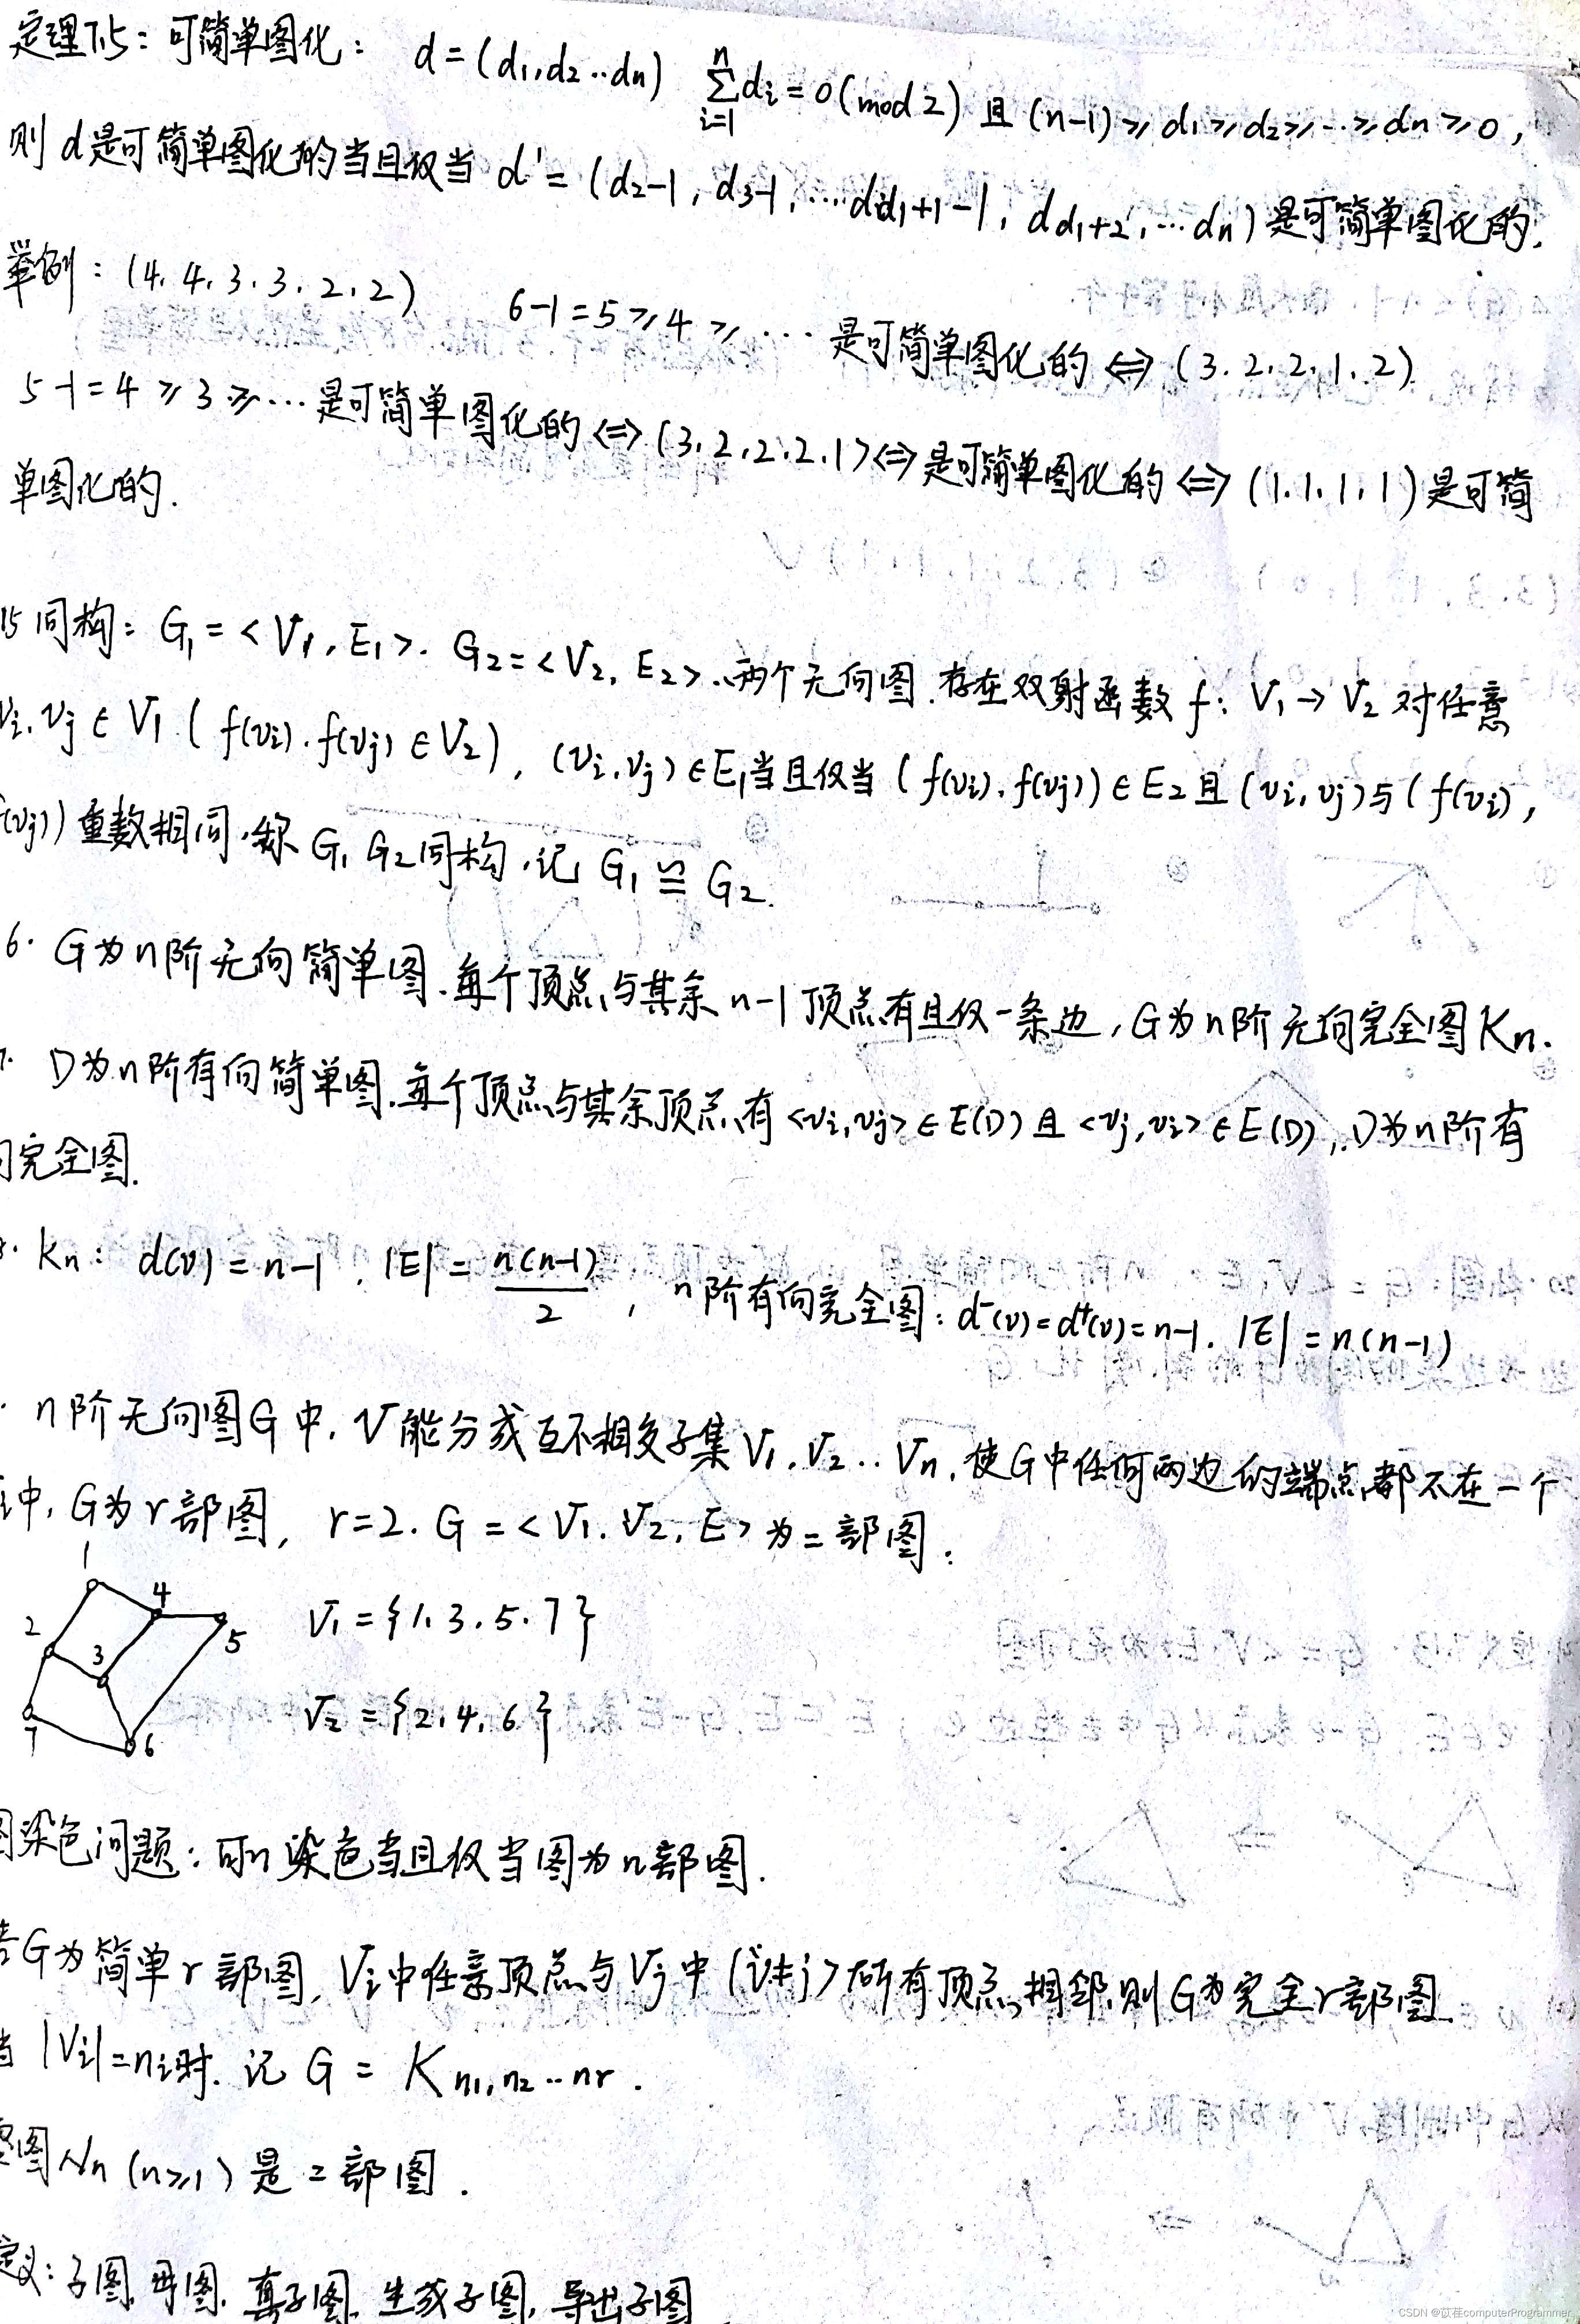 定理7.5：可简单图化： d=(d₁,d₂..dn) ∑ⁿᵢ₌₁dᵢ=0(mod 2) 且 (n-1)≥d₁≥d₂≥…≥dn≥0,
则 d是可简单图化的当且仅当 d'=(d₂-1, d₃-1, …d_{d₁+1}-1, d_{d₁+2},…dn) 是可简单图化的.
举例：(4.4.3.3.2.2) 6-1=5≥4≥…是可简单图化的⇔(3.2.2.1.2)
5-1=4≥3≥…是可简单图化的⇔(3.2.2.2.1)⇔是可简单图化的⇔(1.1.1.1)是可简
单图化的.
15 同构：G₁=<V₁,E₁>. G₂=<V₂,E₂>.两个无向图.存在双射函数 f: V₁→V₂ 对任意
vi.vj∈V₁(f(vi).f(vj)∈V₂), (vi.vj)∈E₁当且仅当(f(vi).f(vj))∈E₂且(vi,vj)与(f(vi),
(vj))重数相同.称G₁ G₂同构.记 G₁≌G₂.
6. G为n阶无向简单图.每个顶点与其余 n-1 顶点有且仅一条边, G为n阶无向完全图Kn.
D为n阶有向简单图.每个顶点与其余顶点有<vi,vj>∈E(D)且<vj,vi>∈E(D), D为n阶有
完全图.
Kn: d(v)=n-1. |E|=n(n-1)/2, n阶有向完全图：d⁻(v)=d⁺(v)=n-1. |E|=n(n-1)
n阶无向图G中, V能分成互不相交子集V₁.V₂..Vn,使G中任何两边的端点都不在一个
中, G为r部图, r=2. G=<V₁.V₂,E>为二部图：
1
4
2
3
5
7
6
V₁={1.3.5.7}
V₂={2.4.6}
图染色问题：可n染色当且仅当图为n部图.
若G为简单r部图, Vi中任意顶点与Vj中(i≠j)所有顶点相邻,则G为完全r部图.
当|Vi|=ni时. 记 G=Kn₁,n₂..nr.
零图Nn(n≥1)是2部图.
定义：子图,母图,真子图,生成子图,导出子图
CSDN @苡荏computerProgrammer